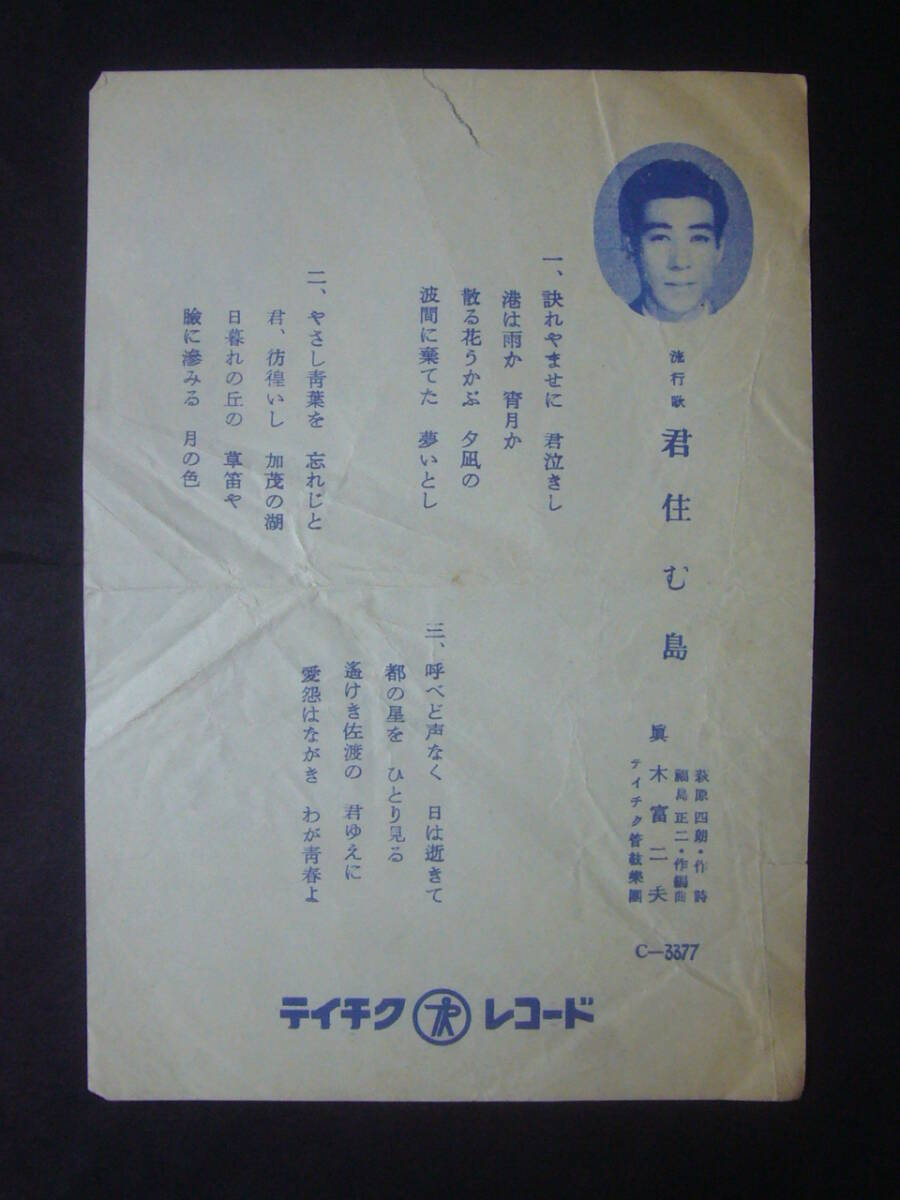 流行歌
君住む島
萩原四朗・作詩
福島正二・作編曲
眞木富二夫
テイチク管絃樂團
C—3377
一、訣れやませに　君泣きし
港は雨か　宵月か
散る花うかぶ　夕凪の
波間に棄てた　夢いとし
二、やさし靑葉を　忘れじと
君、彷徨いし　加茂の湖
日暮れの丘の　草笛や
瞼に滲みる　月の色
三、呼べど声なく　日は逝きて
都の星を　ひとり見る
遙けき佐渡の　君ゆえに
愛怨はながき　わが靑春よ
テイチク レコード